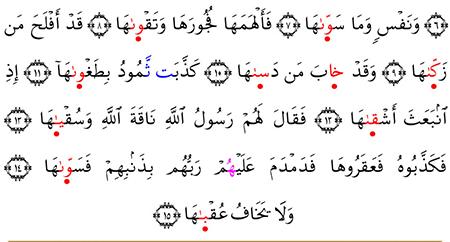 ﴿٦﴾ وَنَفْسٍ وَمَا سَوَّىٰهَا ﴿٧﴾ فَأَلْهَمَهَا فُجُورَهَا وَتَقْوَىٰهَا ﴿٨﴾ قَدْ أَفْلَحَ مَن
زَكَّىٰهَا ﴿٩﴾ وَقَدْ خَابَ مَن دَسَّىٰهَا ﴿١٠﴾ كَذَّبَت ثَّمُودُ بِطَغْوَىٰهَآ ﴿١١﴾ إِذِ
ٱنۢبَعَثَ أَشْقَىٰهَا ﴿١٢﴾ فَقَالَ لَهُمْ رَسُولُ ٱللَّهِ نَاقَةَ ٱللَّهِ وَسُقْيَٰهَا ﴿١٣﴾
فَكَذَّبُوهُ فَعَقَرُوهَا فَدَمْدَمَ عَلَيْهُمْ رَبُّهُم بِذَنۢبِهِمْ فَسَوَّىٰهَا ﴿١٤﴾
وَلَا يَخَافُ عُقْبَٰهَا ﴿١٥﴾